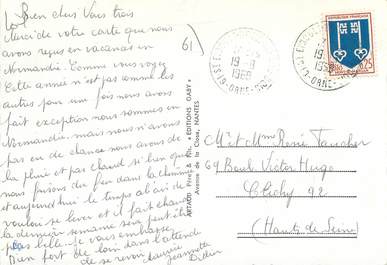 Bien chers Vous trois
Merci de votre carte que nous
avons reçue en vacances en
Normandie. Comme vous voyez
Cette année n'est pas comme les
autres pour une fois nous avons
fait exception nous sommes en
Normandie mais nous n'avons
pas eu de chance nous avons de
la pluie et pas chaud si bien que
nous faisons du feu dans la cheminée
et aujourd'hui le temps a l'air de
vouloir se lever et il fait chaud
la dernière semaine sera peut être
plus belle. Je vous embrasse
Bien fort de loin dans l'attente
de se revoir
Jeannette
Didier
61)
ARTAUD Père & Fils "ÉDITIONS GABY"
Avenue de la Close, NANTES
19-8
1966
61-ORNE
REPUBLIQUE FRANÇAISE
0,25
Mr et Mme René
69 Boul Victor Hugo
Clichy 92
(Hauts de Seine)